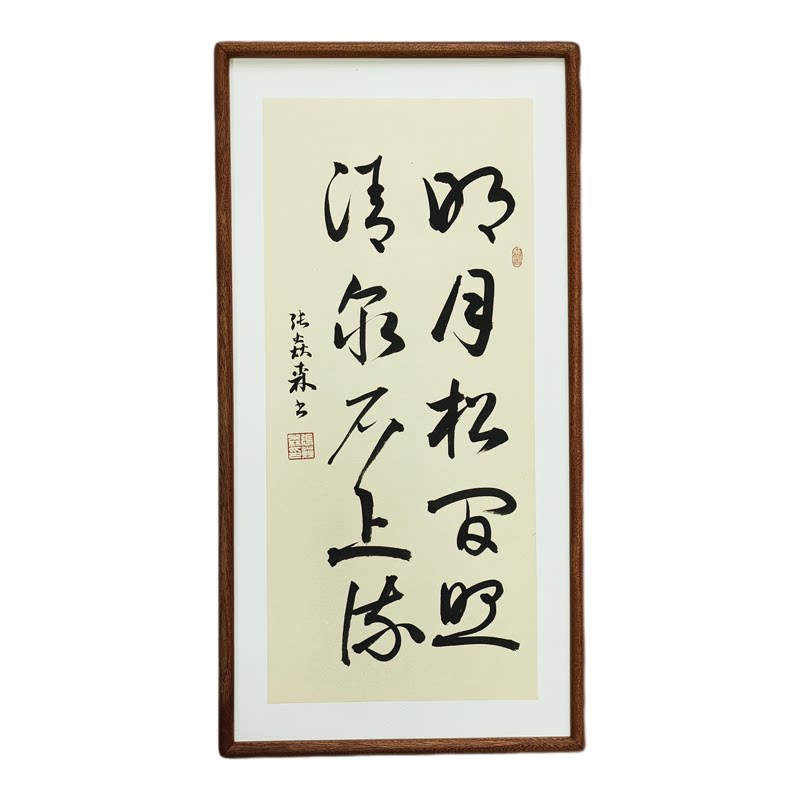 明月松间照
清泉石上流
张焱森书